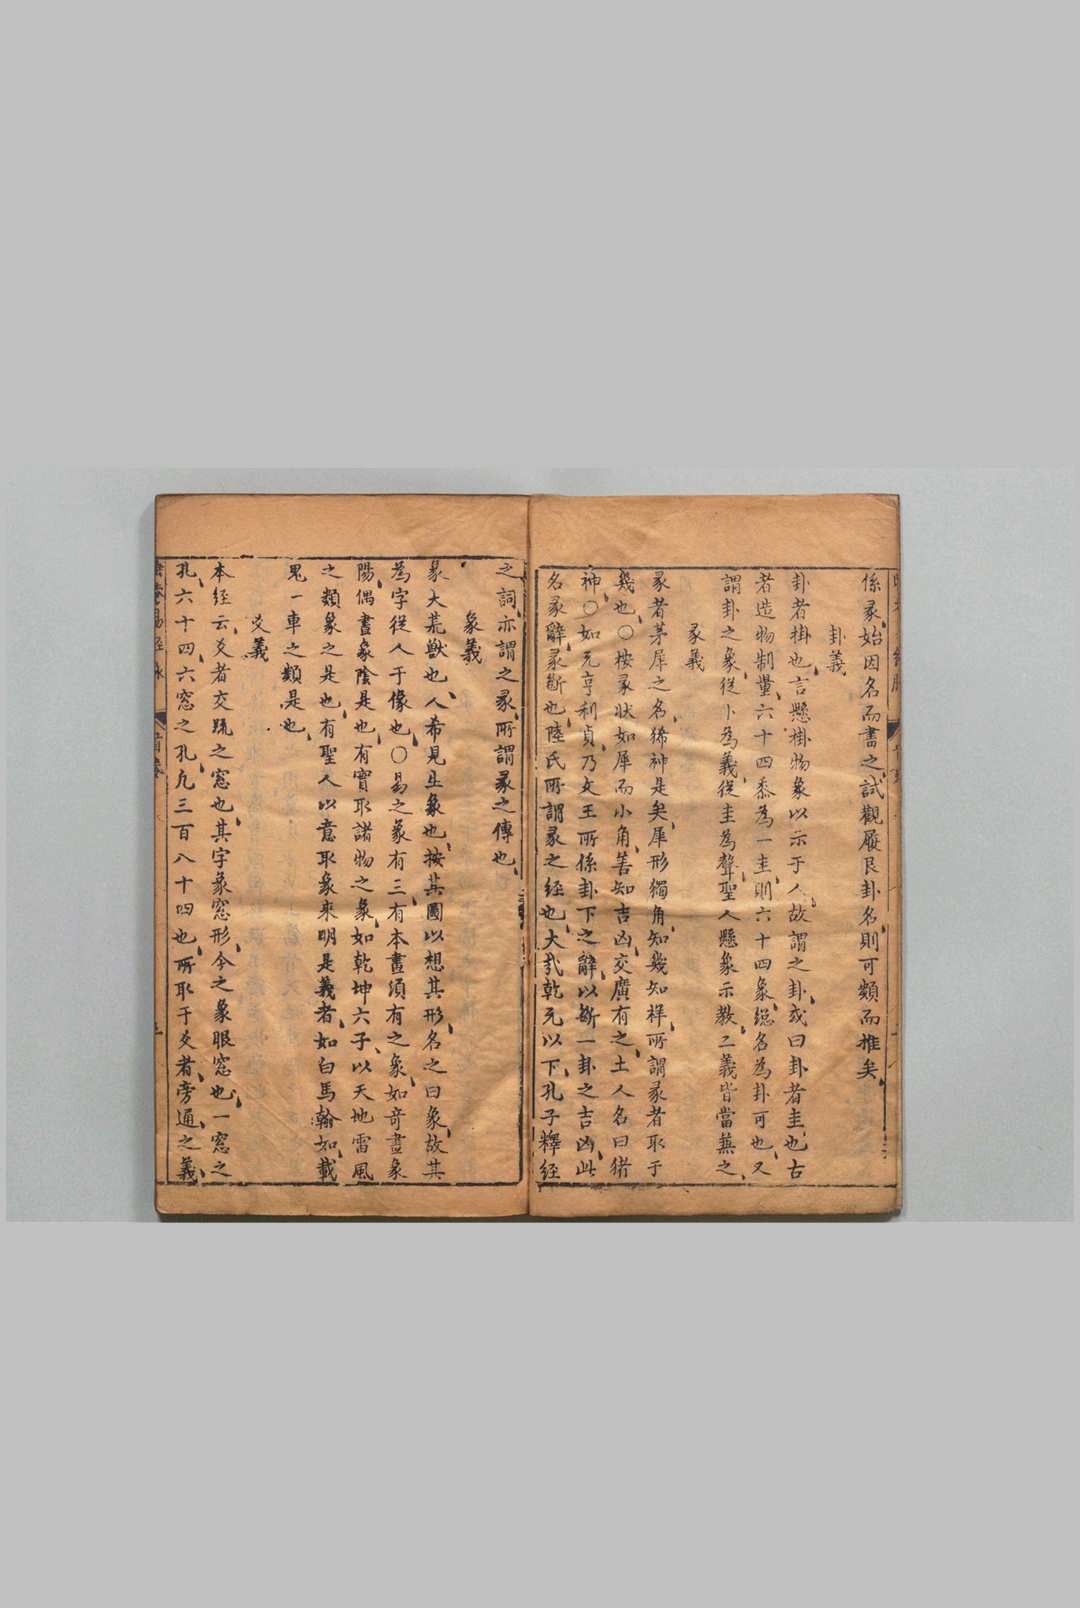 係彖始因名而書之試觀履艮卦名則可類而推矣
卦義
卦者掛也言懸掛物象以示于人故謂之卦或曰卦者圭也古
者造物制量六十四黍為一圭則六十四象總名為卦可也又
謂卦之象從卜為義從圭為聲聖人懸象示教二義皆當蕪之
彖義
彖者茅犀之名狶神是矣犀形獨角知幾知祥所謂彖者取于
幾也〇按彖狀如犀而小角善知吉凶交廣有之土人名曰猪
神〇如元亨利貞乃文王所係卦下之辭以斷一卦之吉凶此
名彖辭彖斷也陸氏所謂彖之經也大哉乾元以下孔子釋經
之詞亦謂之彖所謂彖之傳也
象義
象大荒獸也人希見生象也按其圖以想其形名之曰象故其
為字從人于像也〇易之象有三有本畫須有之象如奇畫象
陽偶畫象陰是也有實取諸物之象如乾坤六子以天地雷風
之類象之是也有聖人以意取象來明是義者如白馬翰如載
鬼一車之類是也
爻義
本經云爻者交疏之窓也其字象窓形今之象眼窓也一窓之
孔六十四六窓之孔九三百八十四也所取于爻者旁通之義
首卷